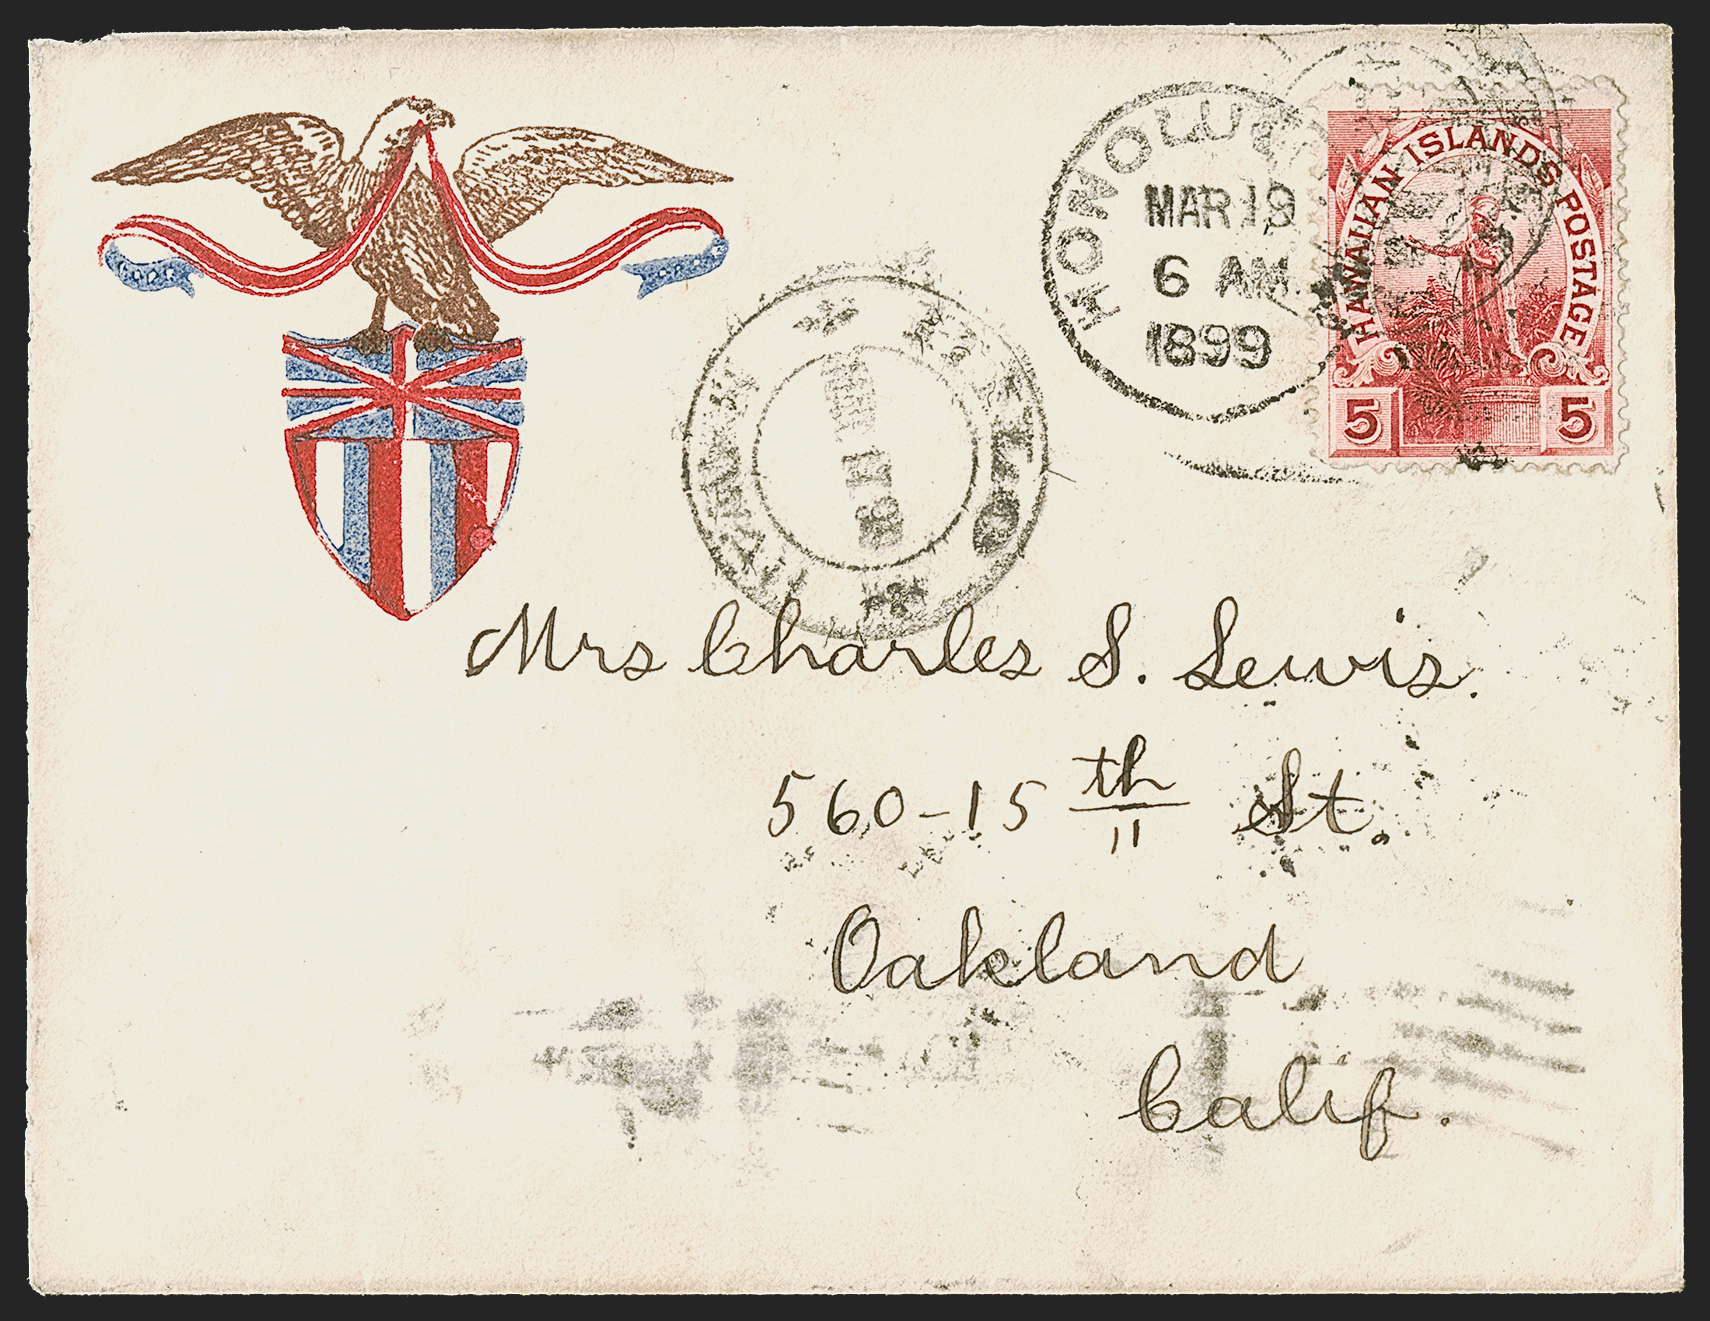 HONOLULU
MAR 19
6 AM
1899
HAWAIIAN ISLANDS POSTAGE
5 5
Mrs Charles S. Lewis.
560-15 th St.
Oakland
Calif.